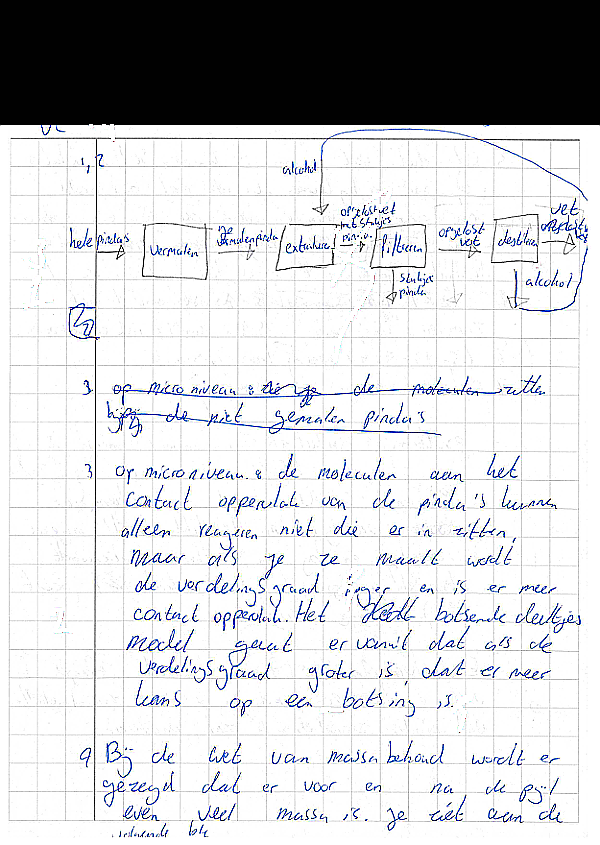 1, 2
alcohol
hele pinda's
vermalen
gemalen pinda
extraheren
opgelost vet
met stukjes
pinda
filtreren
opgelost
vet
destilleren
vet
stukjes
pinda
alcohol
3 op micro niveau: de moleculen zitten
de niet gemalen pinda's
3 op micro niveau: de moleculen aan het
contact oppervlak van de pinda's kunnen
alleen reageren niet die er in zitten,
maar als je ze maalt wordt
de verdelingsgraad hoger en is er meer
contact oppervlak. Het botsende deeltjes
model gaat er vanuit dat als de
verdelingsgraad groter is, dat er meer
kans op een botsing is.
9 Bij de wet van massabehoud wordt er
gezegd dat er voor en na de pijl
even veel massa is. je ziet aan de